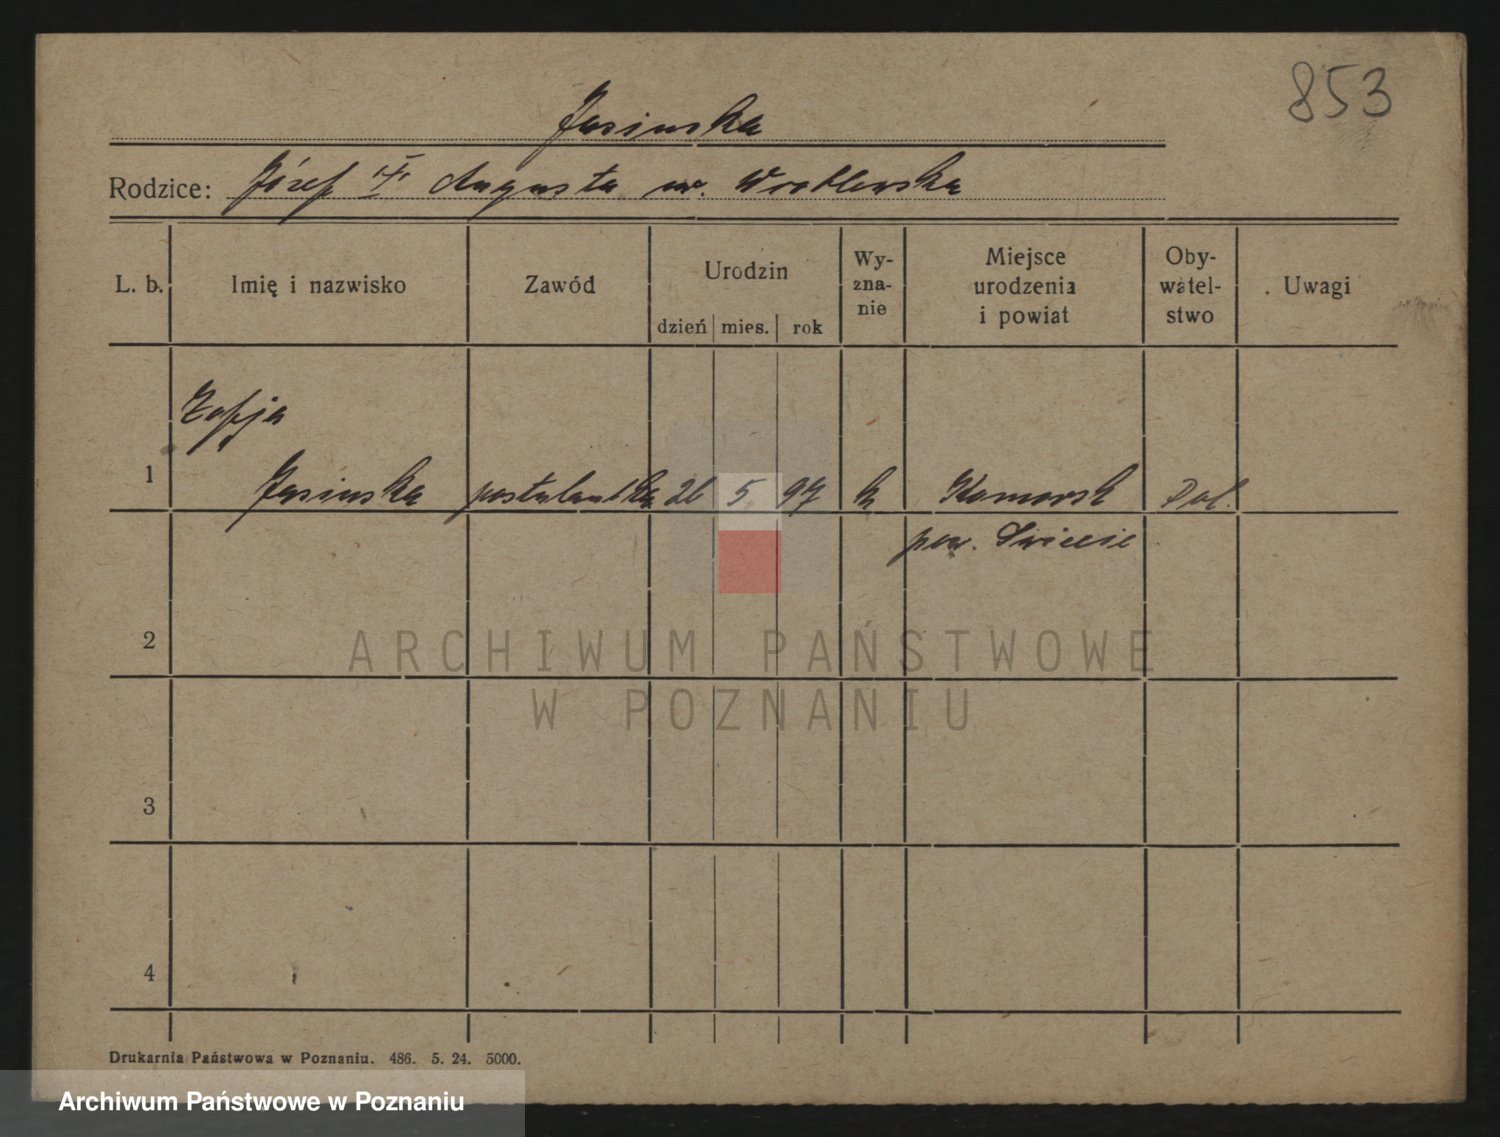 853
Jasinska
Rodzice: Józef i Augusta ur. Wroblewska
L. b. Imię i nazwisko Zawód Urodzin dzień mies. rok Wy-zna-nie Miejsce urodzenia i powiat Oby-watel-stwo Uwagi
Zofja
1 Jasinska postulantka 26 5 97 k Komorsk Pol.
pow. Swiecie
2
ARCHIWUM PAŃSTWOWE
W POZNANIU
3
4
Drukarnia Państwowa w Poznaniu. 486. 5. 24. 5000.
Archiwum Państwowe w Poznaniu